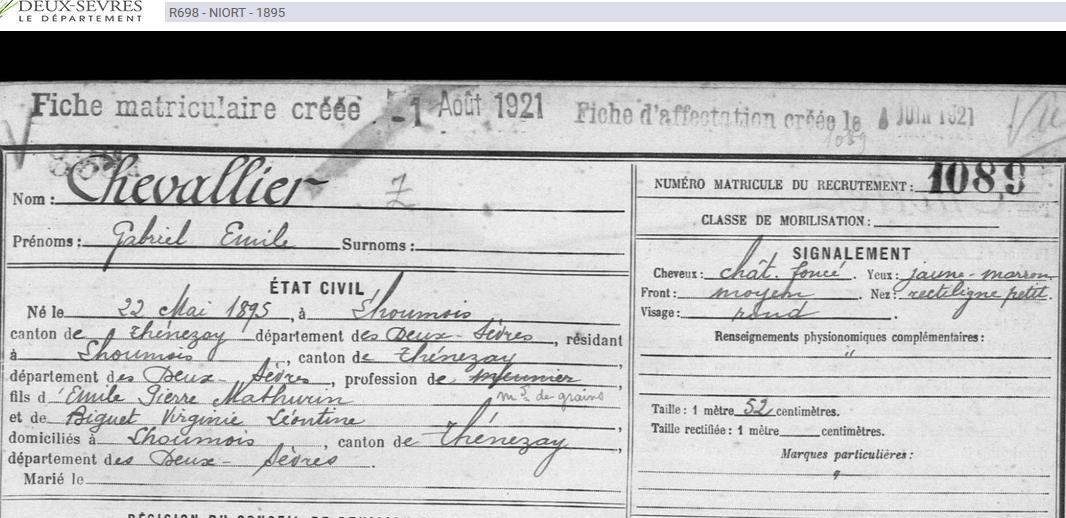 DEUX-SÈVRES
LE DÉPARTEMENT
R698 - NIORT - 1895
Fiche matriculaire créée -1 Août 1921
Fiche d'affectation créée le JUIN 1921
1089
Nom : Chevallier
Prénoms : Gabriel Emile Surnoms :
ÉTAT CIVIL
Né le 22 Mai 1895, à Lhoumois
canton de Thénezay département des Deux-Sèvres, résidant
à Lhoumois, canton de Thénezay
département des Deux-Sèvres, profession de meunier
md de grains
fils d'Emile Pierre Mathurin
et de Biguet Virginie Léontine,
domiciliés à Lhoumois, canton de Thénezay,
département des Deux-Sèvres.
Marié le
NUMÉRO MATRICULE DU RECRUTEMENT : 1089
CLASSE DE MOBILISATION :
SIGNALEMENT
Cheveux : chât. foncé. Yeux : jaune-marron
Front : moyen. Nez : rectiligne petit.
Visage : rond.
Renseignements physionomiques complémentaires :
"
Taille : 1 mètre 52 centimètres.
Taille rectifiée : 1 mètre centimètres.
Marques particulières :
"